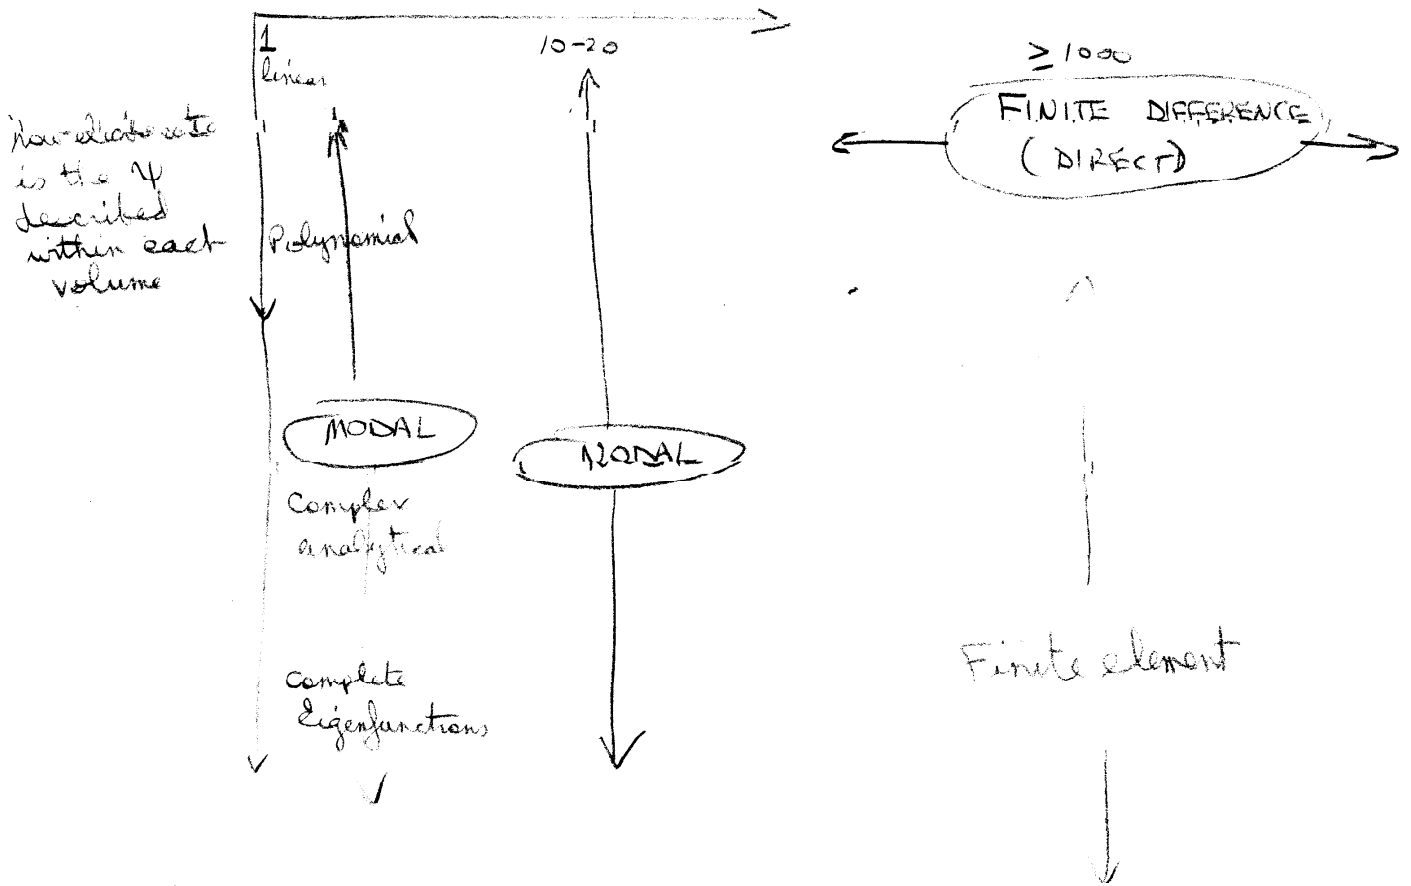 1
linear
10-20
≥ 1000
FINITE DIFFERENCE
(DIRECT)
How elaborate
is the ψ
described
within each
volume
Polynomial
MODAL
NODAL
Complex
analytical
Finite element
Complete
Eigenfunctions